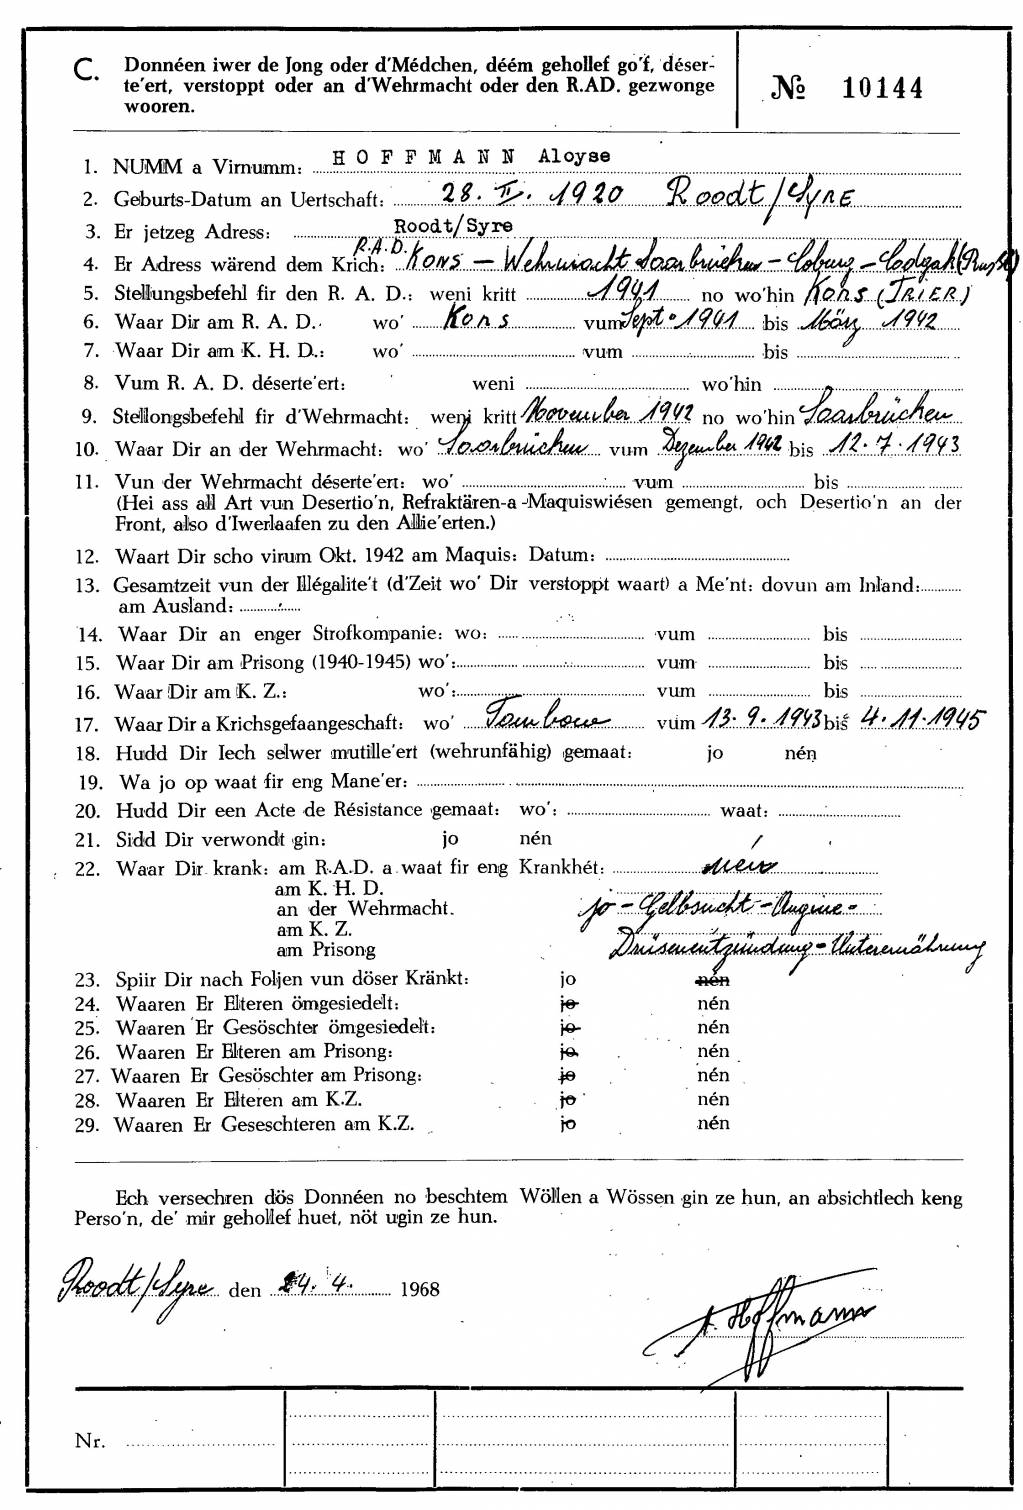 C. Donnéen iwer de Jong oder d'Médchen, déém gehollef go'f, déser-
te'ert, verstoppt oder an d'Wehrmacht oder den R.AD. gezwonge
wooren.
№ 10144
1. NUMM a Virnumm: HOFFMANN Aloyse
2. Geburts-Datum an Uertschaft: 28. II. 1920 Roodt/Syre
3. Er jetzeg Adress: Roodt/Syre
4. Er Adress wärend dem Krich: R.A.D. Kons – Wehrmacht Saarbrücken – Coburg –
5. Stellungsbefehl fir den R. A. D.: weni kritt 1941 no wo'hin Kons (TRIER)
6. Waar Dir am R. A. D. wo' Kons vum Sept. 1941 bis März 1942
7. Waar Dir am K. H. D.: wo' vum bis
8. Vum R. A. D. déserte'ert: weni wo'hin
9. Stellongsbefehl fir d'Wehrmacht: weni kritt November 1942 no wo'hin Saarbrücken
10. Waar Dir an der Wehrmacht: wo' Saarbrücken vum Dezember 1942 bis 12.7.1943
11. Vun der Wehrmacht déserte'ert: wo' vum bis
(Hei ass all Art vun Desertio'n, Refraktären-a-Maquiswiésen gemengt, och Desertio'n an der
Front, also d'Iwerlaafen zu den Allie'erten.)
12. Waart Dir scho virum Okt. 1942 am Maquis: Datum:
13. Gesamtzeit vun der Illégalite't (d'Zeit wo' Dir verstoppt waart) a Me'nt: dovun am Inland:
am Ausland:
14. Waar Dir an enger Strofkompanie: wo: vum bis
15. Waar Dir am Prisong (1940-1945) wo': vum bis
16. Waar Dir am K. Z.: wo': vum bis
17. Waar Dir a Krichsgefaangeschaft: wo' Tambow vum 13.9.1943 bis 4.11.1945
18. Hudd Dir Iech selwer mutille'ert (wehrunfähig) gemaat: jo nén
19. Wa jo op waat fir eng Mane'er:
20. Hudd Dir een Acte de Résistance gemaat: wo': waat:
21. Sidd Dir verwondt gin: jo nén /
22. Waar Dir krank: am R.A.D. a waat fir eng Krankhét: nein
am K. H. D.
an der Wehrmacht. jo – Gelbsucht – Angine –
am K. Z.
am Prisong Drüsenentzündung – Unterernährung
23. Spiir Dir nach Foljen vun döser Kränkt: jo nén
24. Waaren Er Elteren ömgesiedelt: jo nén
25. Waaren Er Gesöschter ömgesiedelt: jo nén
26. Waaren Er Elteren am Prisong: jo nén
27. Waaren Er Gesöschter am Prisong: jo nén
28. Waaren Er Elteren am K.Z. jo nén
29. Waaren Er Geseschteren am K.Z. jo nén
Ech versechren dös Donnéen no beschtem Wöllen a Wössen gin ze hun, an absichtlech keng
Perso'n, de' mir gehollef huet, nöt ugin ze hun.
Roodt/Syre den 24.4. 1968
A. Hoffmann
Nr.